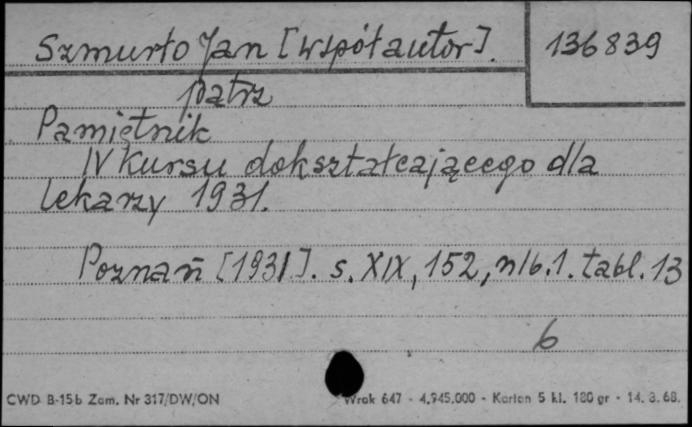 Szmurło Jan [współautor].
136839
patrz
Pamiętnik
IV Kursu dokształcającego dla
lekarzy 1931.
Poznań [1931]. s. XIX, 152, nlb. 1. tabl. 13
6
CWD B-15b Zam. Nr 317/DW/ON
Wrak 647 - 4.945.000 - Karton 5 kl. 180 gr - 14. 3. 68.